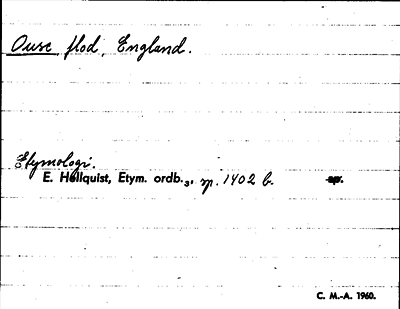 Ouse flod, England.
Etymologi.
E. Hellquist, Etym. ordb.₃, p. 1402 b. spr.
C. M.-A. 1960.